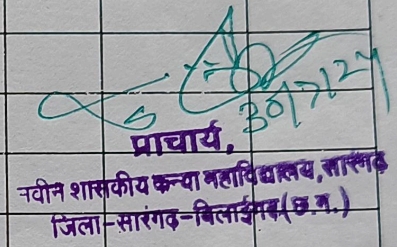 30/7/24
प्राचार्य,
नवीन शासकीय कन्या महाविद्यालय, सारंगढ
जिला-सारंगढ़-बिलाईगढ़ (छ.ग.)